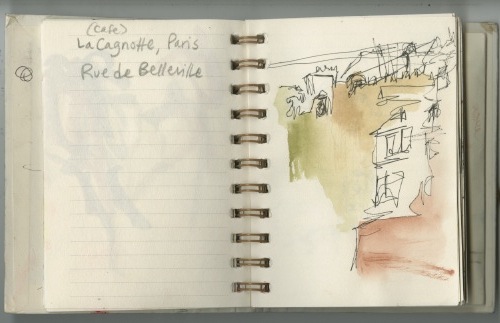 (cafe)
La Cagnotte, Paris
Rue de Belleville